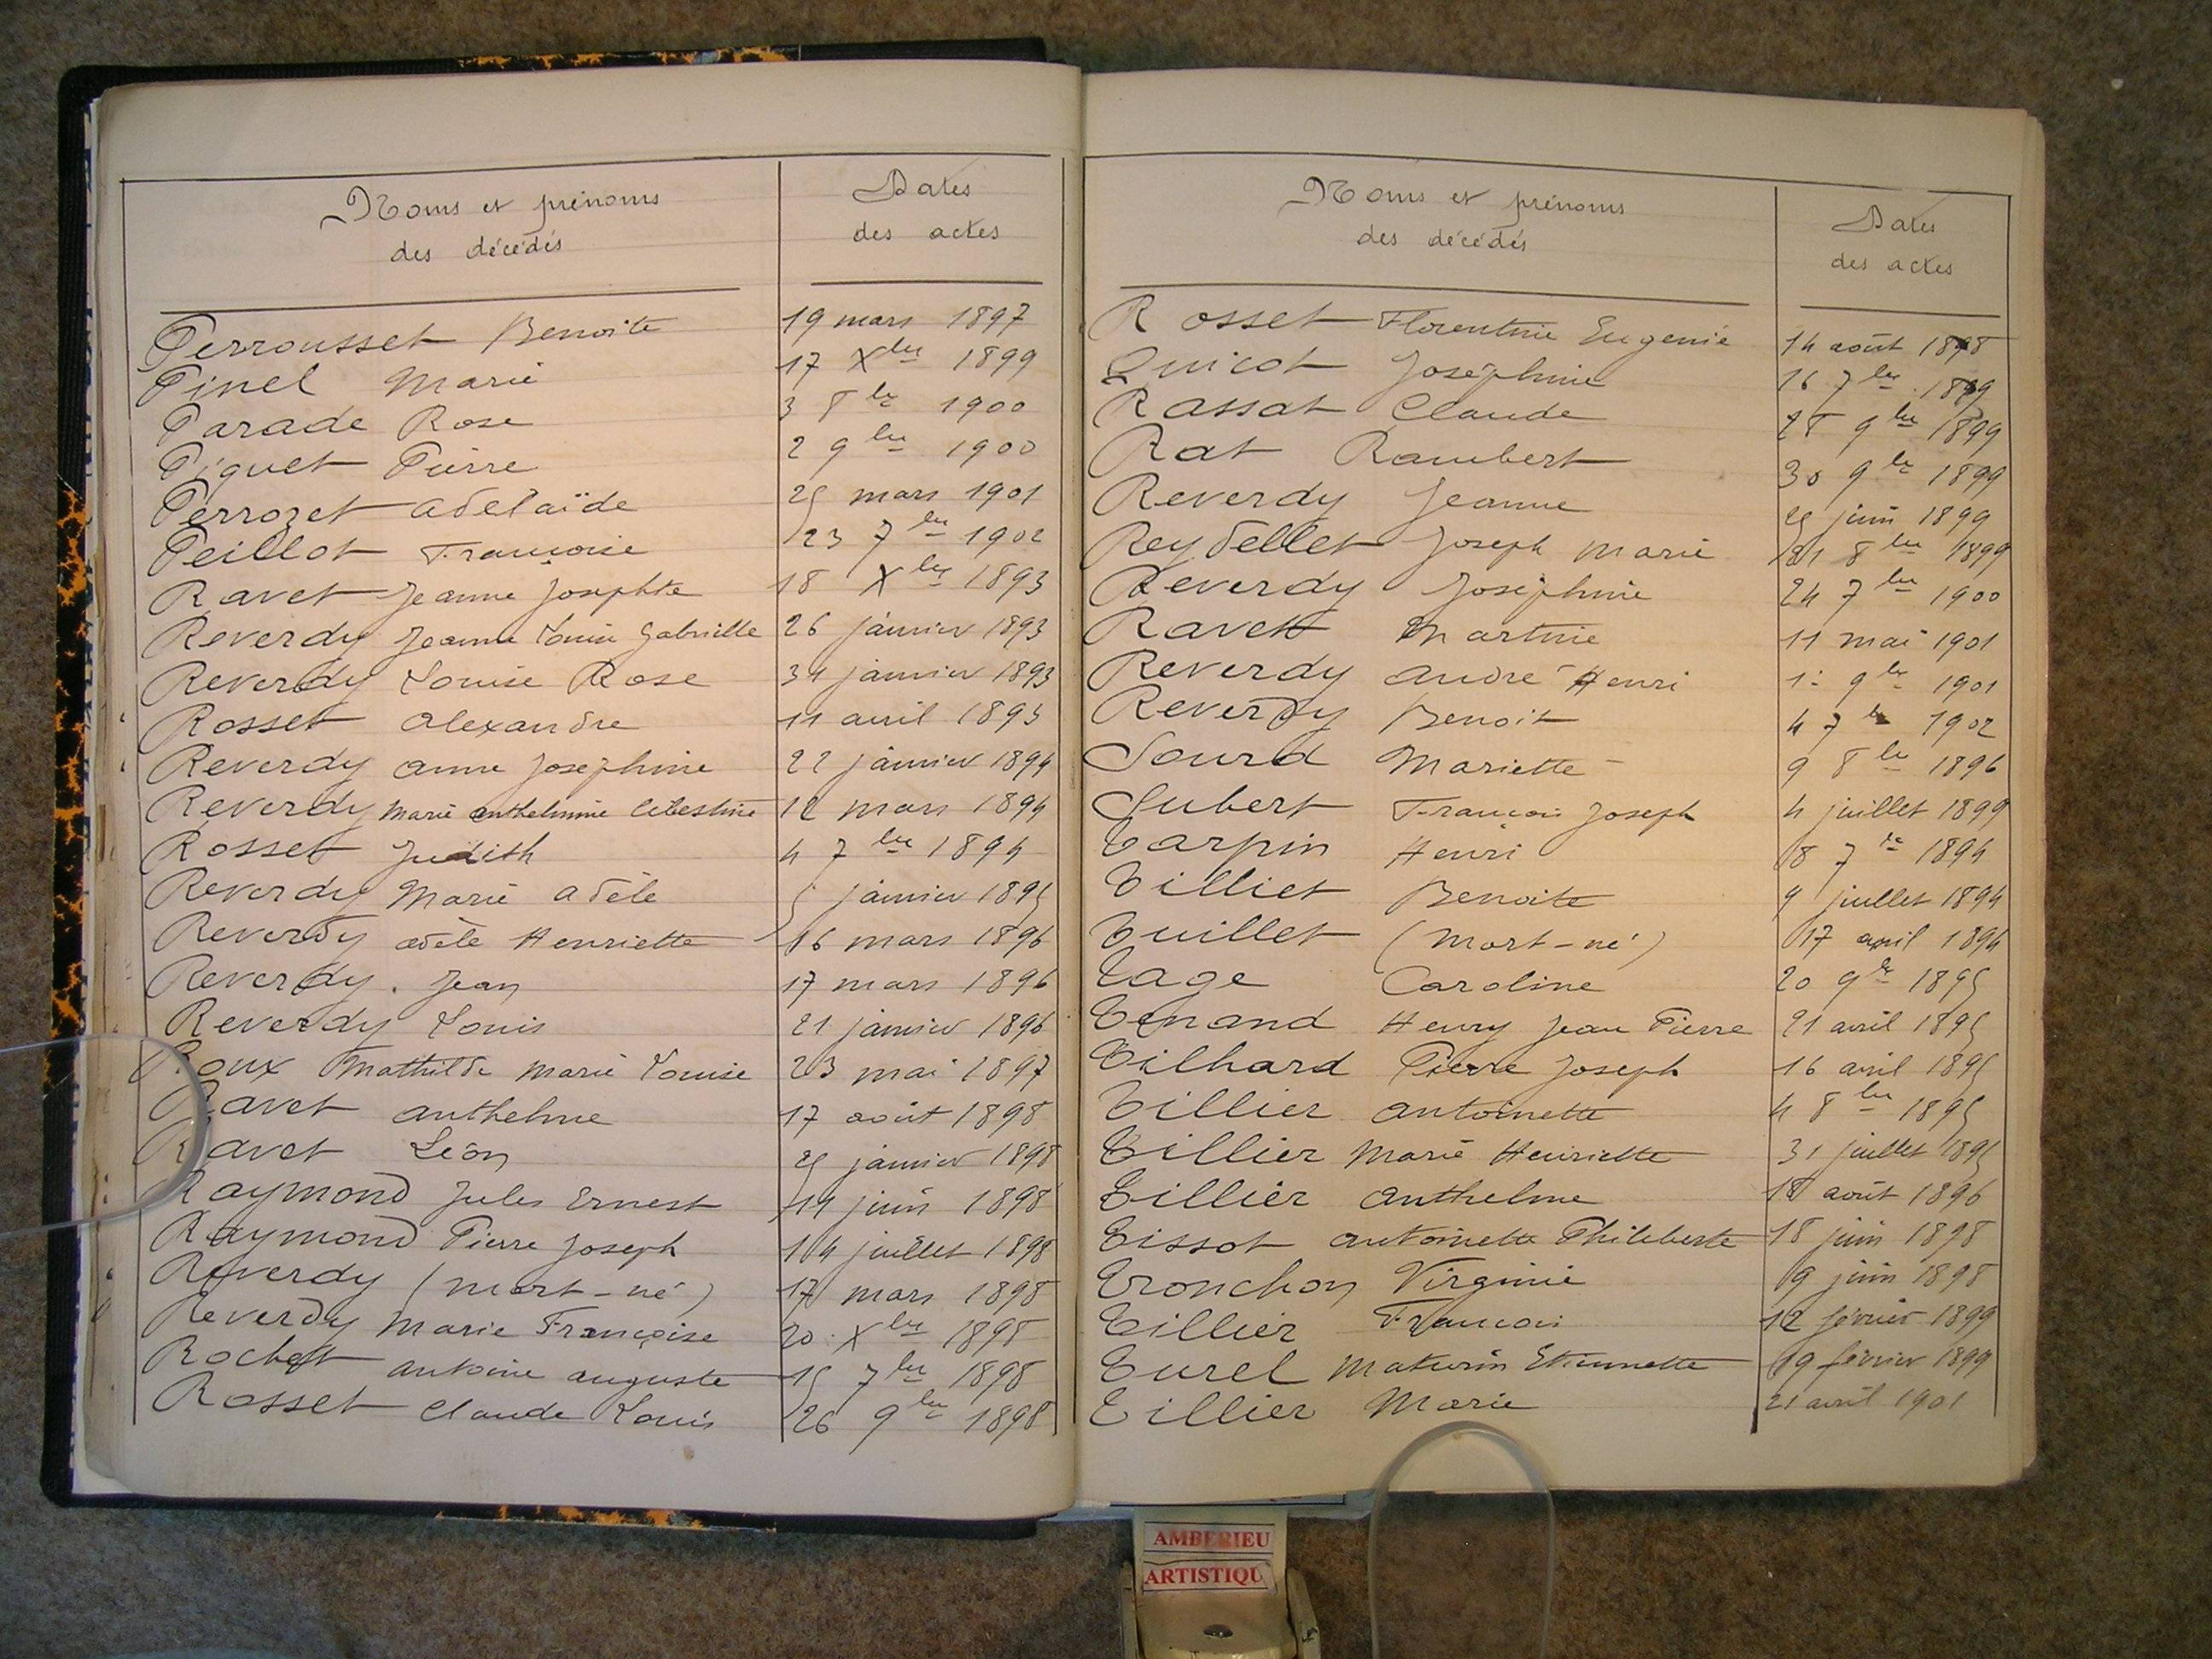 Noms et prénoms
des décédés
Dates
des actes
Perrousset Benoite 19 mars 1897
Pinel Marie 17 Xbre 1899
Parade Rose 3 8bre 1900
Piguet Pierre 2 9bre 1900
Perrozet Adelaïde 25 mars 1901
Peillot Françoise 23 7bre 1902
Ravet Jeanne Josephte 18 Xbre 1893
Reverdy Jeanne Louise Gabrielle 26 janvier 1893
Reverdy Louise Rose 31 janvier 1893
Rosset Alexandre 11 avril 1893
Reverdy Anne Josephine 22 janvier 1894
Reverdy Marie Anthelmine Célestine 12 mars 1894
Rosset Judith 4 7bre 1894
Reverdy Marie Adèle 5 janvier 1895
Reverdy Adèle Henriette 16 mars 1896
Reverdy. Jean 17 mars 1896
Reverdy Louis 21 janvier 1896
Roux Mathilde Marie Louise 23 mai 1897
Ravet Anthelme 17 août 1898
Ravet Léon 25 janvier 1898
Raymond Jules Ernest 14 juin 1898
Raymond Pierre Joseph 14 juillet 1898
Reverdy (mort-né) 17 mars 1898
Reverdy Marie Françoise 20 Xbre 1898
Rochet Antoine Auguste 15 7bre 1898
Rosset Claude Louis 26 9bre 1898
Noms et prénoms
des décédés
Dates
des actes
Rosset Florentine Eugenie 14 août 1898
Quicot Joséphine 16 7bre 1899
Rassat Claude 28 9bre 1899
Rat Rambert 30 9bre 1899
Reverdy Jeanne 25 juin 1899
Reydellet Joseph Marie 21 8bre 1899
Reverdy Joséphine 24 7bre 1900
Ravet Martine 11 mai 1901
Reverdy André Henri 1er 9bre 1901
Reverdy Benoit 4 7bre 1902
Sourd Mariette 9 8bre 1896
Subert François Joseph 4 juillet 1899
Tarpin Henri 8 7bre 1894
Tilliet Benoite 9 juillet 1894
Tuillet (mort-né) 17 avril 1894
Tage Caroline 20 9bre 1895
Tenand Henry Jean Pierre 21 avril 1895
Tilhard Pierre Joseph 16 avril 1895
Tillier Antoinette 4 8bre 1895
Tillier Marie Henriette 31 juillet 1895
Tillier Anthelme 18 août 1896
Tissot Antoinette Philiberte 18 juin 1898
Tronchon Virginie 9 juin 1898
Tillier François 12 février 1899
Turel Maturin Etiennette 19 février 1899
Tillier Marie 21 avril 1901
AMBERIEU
ARTISTIQU